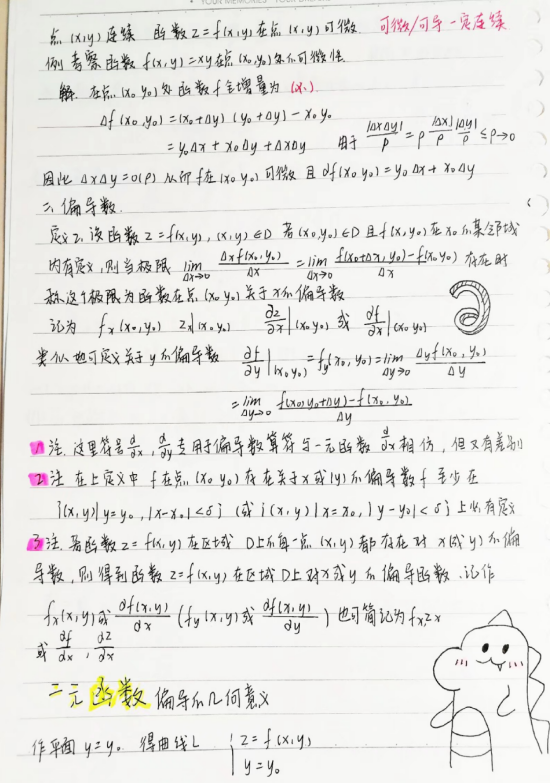 点(x,y)连续 函数z=f(x,y)在点(x,y)可微 可微/可导一定连续
例 考察函数f(x,y)=xy在点(x₀,y₀)处的可微性
解 在点(x₀ y₀)处函数f全增量为
Δf(x₀,y₀)=(x₀+Δy)(y₀+Δy)-x₀y₀
=y₀Δx+x₀Δy+ΔxΔy 由于 |ΔxΔy|/ρ=ρ |Δx|/ρ |Δy|/ρ ≤ρ→0
因此 ΔxΔy=o(ρ) 从而f在(x₀ y₀)可微 且 df(x₀ y₀)=y₀Δx+x₀Δy
二.偏导数.
定义2. 设函数z=f(x,y),(x,y)∈D 若(x₀,y₀)∈D且f(x,y₀)在x₀的某邻域
内有定义,则当极限 lim Δx→0 Δxf(x₀,y₀)/Δx = lim Δx→0 f(x₀+Δx,y₀)-f(x₀ y₀)/Δx 存在时
称这个极限为函数在点(x₀ y₀)关于x的偏导数
记为 fx(x₀,y₀) zx|(x₀,y₀) ∂z/∂x|(x₀ y₀) 或 ∂f/∂x|(x₀ y₀)
类似也可定义关于y的偏导数 ∂f/∂y|(x₀y₀)=fy(x₀,y₀)=lim Δy→0 Δyf(x₀,y₀)/Δy
=lim Δy→0 f(x₀,y₀+Δy)-f(x₀.y₀)/Δy
1 注. 这里符号∂/∂x,∂/∂y专用于偏导数算符与一元函数d/dx相仿,但又有差别
2 注 在上定义中 f在点(x₀ y₀)存在关于x或(y)的偏导数f 至少在
{(x,y)|y=y₀,|x-x₀|<δ}(或{(x,y)|x=x₀,|y-y₀|<δ}上必有定义
3 注. 若函数z=f(x,y)在区域D上的每一点(x,y)都存在对x(或y)的偏
导数,则得到函数z=f(x,y)在区域D上对x或y的偏导函数.记作
fx(x,y)或∂f(x,y)/∂x(fy(x,y)或∂f(x,y)/∂y)也可简记为fx zx
或∂f/∂x,∂z/∂x
二元函数偏导的几何意义
作平面y=y₀ 得曲线L { z=f(x,y)
y=y₀